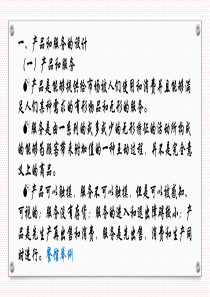 一、产品和服务的设计
(一)产品和服务
产品是能够提供给市场被人们使用和消费并且能够满
足人们某种需求的有形物品和无形的服务。
服务是由一系列的或多或少的无形特征的活动所构成
的能够给顾客带来附加值的一种互动过程,并不是完全意
义上的商品。
产品可以触摸,服务不可以触摸,但是可以被感知、
可视的;服务没有存货;服务的进入和退出障碍较小;产
品是先生产再出售和消费,服务是先出售,消费和生产同
时进行。餐馆举例